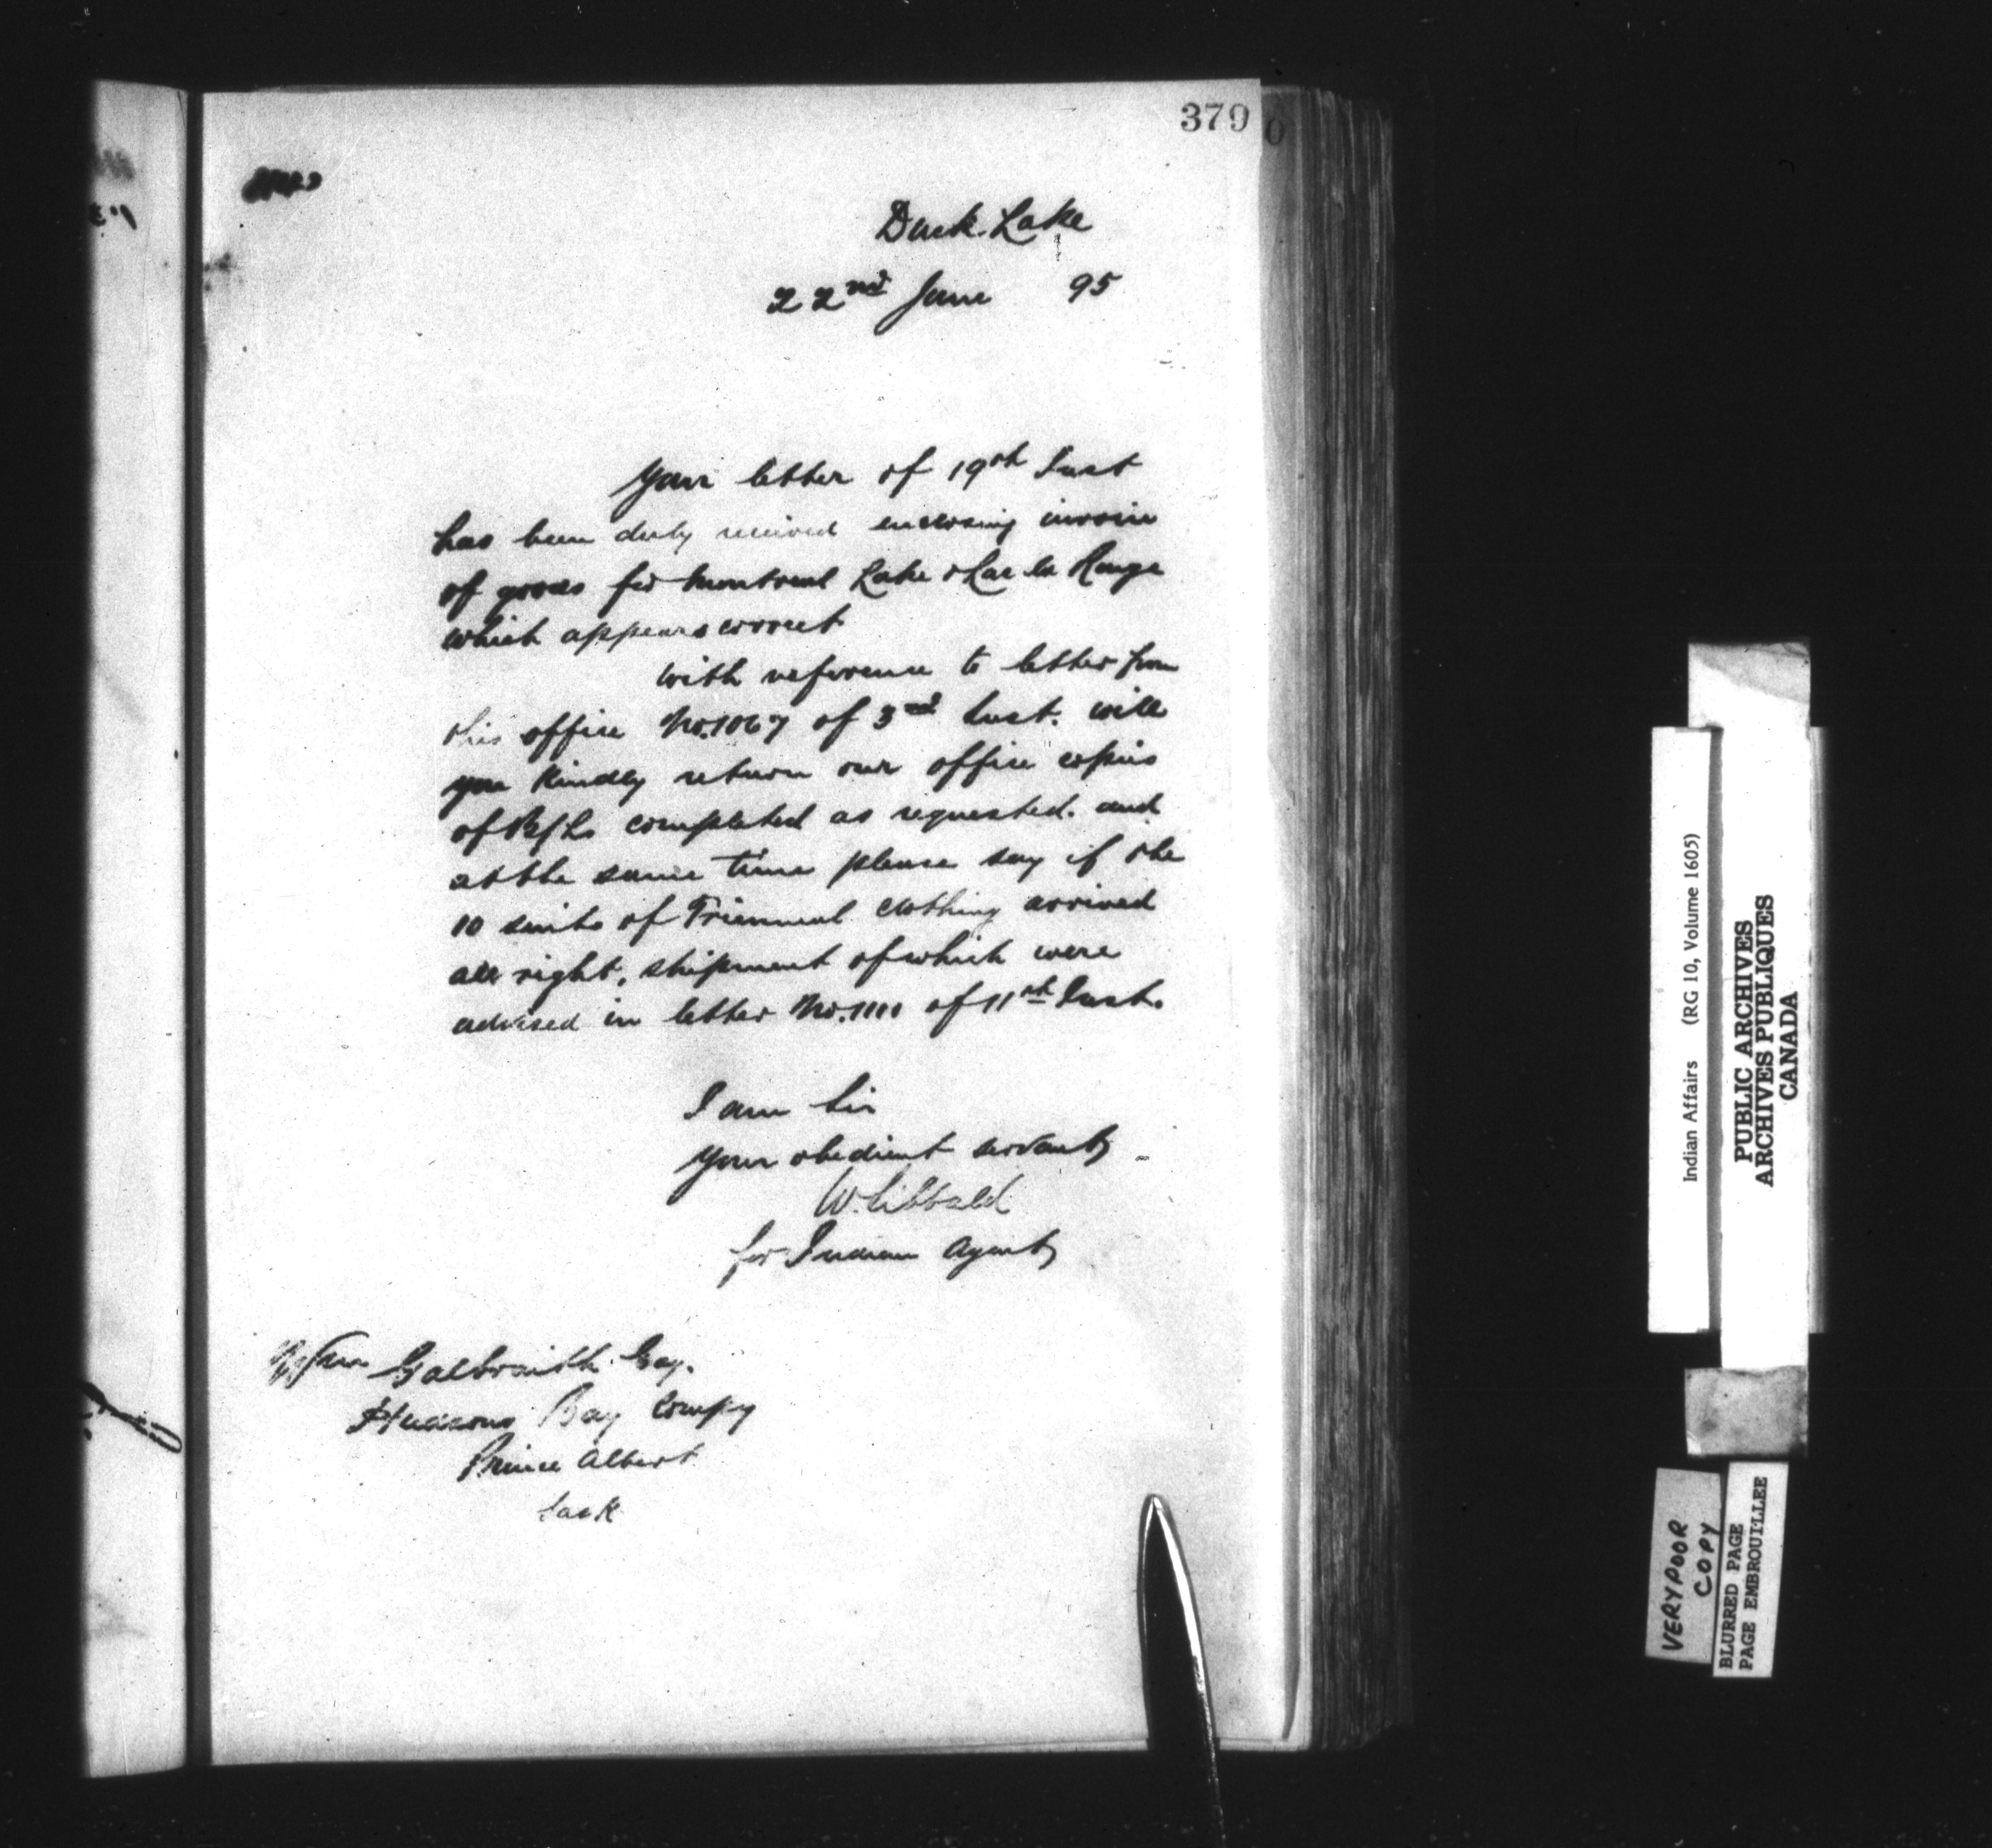 379
Duck Lake
22nd June 95
Your letter of 19th Inst
has been duly received enclosing invoice
of goods for Montreal Lake & Lac la Ronge
which appears correct
With reference to letter from
this office No. 1067 of 3rd Inst. will
you kindly return our office copies
of B/Ls completed as requested. and
at the same time please say if the
10 suits of Triennial clothing arrived
all right, shipment of which were
advised in letter No. 1110 of 11th Inst.
I am Sir
Your obedient servant
W. Sibbald
for Indian Agent
Galbraith Esq.
Hudsons Bay Compy
Prince Albert
Sask
Indian Affairs (RG 10, Volume 1605)
PUBLIC ARCHIVES
ARCHIVES PUBLIQUES
CANADA
VERY POOR
COPY
BLURRED PAGE
PAGE EMBROUILLEE